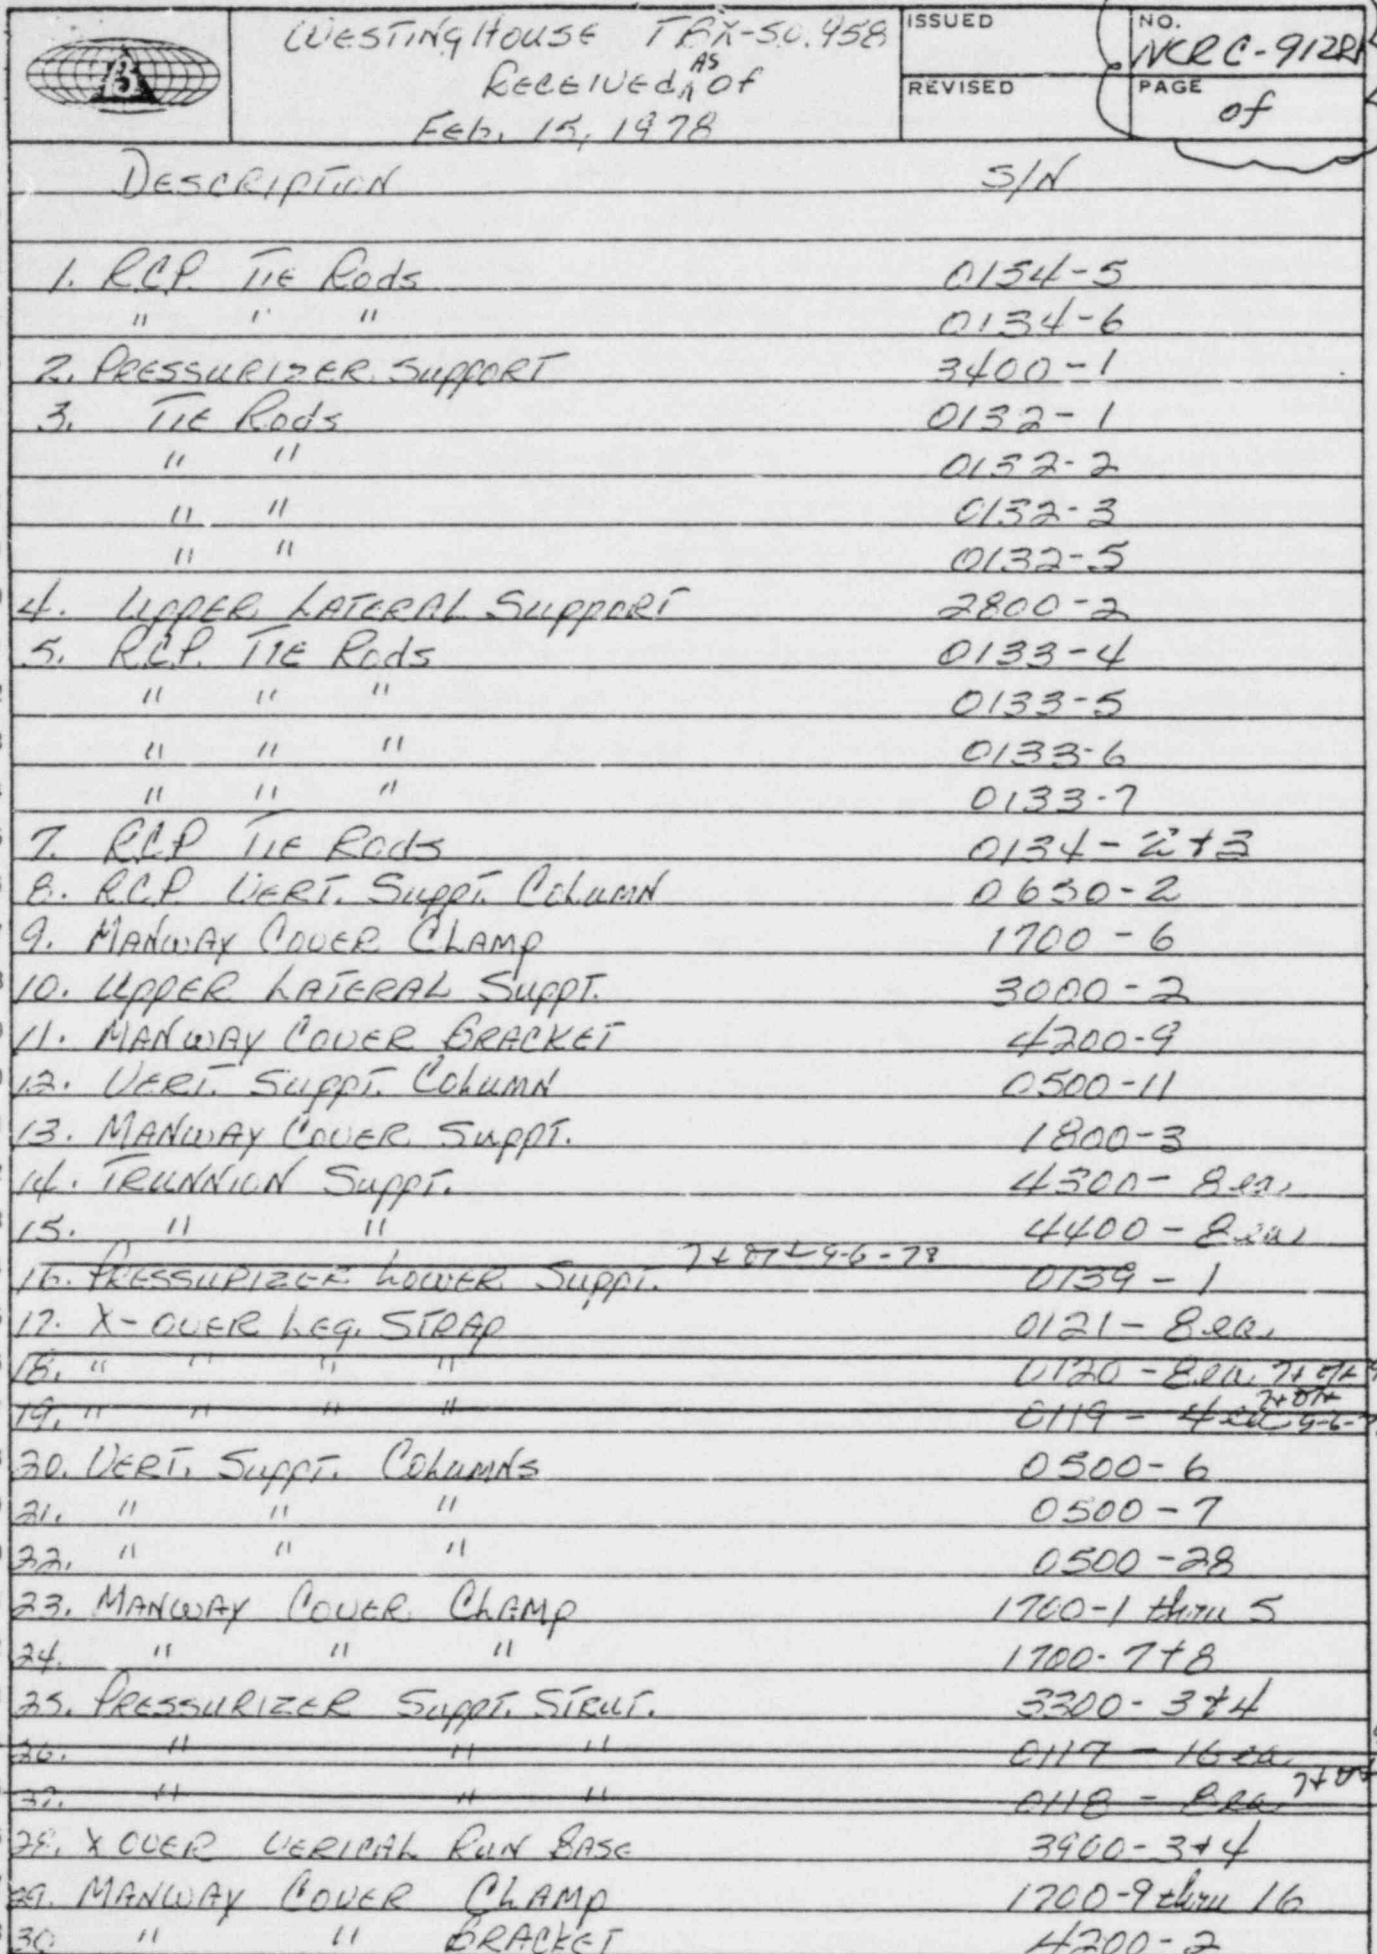 WESTINGHOUSE TBX-SO. 458
RECEIVED AS OF
FEB. 15, 1978
ISSUED
REVISED
NO.
NCR C-912R1
PAGE
of
B
DESCRIPTION S/N
1. R.C.P. TIE Rods 0134-5
" " " 0134-6
2. PRESSURIZER SUPPORT 3400-1
3. TIE Rods 0132-1
" " 0132-2
" " 0132-3
" " 0132-5
4. UPPER LATERAL SUPPORT 2800-2
5. R.C.P. TIE Rods 0133-4
" " " 0133-5
" " " 0133-6
" " " 0133-7
7. R.C.P TIE Rods 0134-2+3
8. R.C.P VERT. SUPPT. COLUMN 0630-2
9. MANWAY COVER CLAMP 1700-6
10. UPPER LATERAL SUPPT. 3000-2
11. MANWAY COVER BRACKET 4200-9
12. VERT. SUPPT. COLUMN 0500-11
13. MANWAY COVER SUPPT. 1800-3
14. TRUNNION SUPPT. 4300-8 ea.
15. " " 4400-8 ea.
16. PRESSURIZER LOWER SUPPT. 9-6-78 0139-1
17. X-OVER LEG. STRAP 0121-8 ea.
18. " " " " 0120-8 ea.
19. " " " " 0119-4 ea
20. VERT. SUPPT. COLUMNS 0500-6
21. " " " 0500-7
22. " " " 0500-28
23. MANWAY COVER CLAMP 1700-1 thru 5
24. " " " 1700-7+8
25. PRESSURIZER SUPPT. STRUT. 3300-3+4
26. " " " 0117-16 ea
27. " " " 0118-8 ea
28. X OVER VERICAL RUN BASE 3900-3+4
29. MANWAY COVER CLAMP 1700-9 thru 16
30 " " BRACKET 4200-2